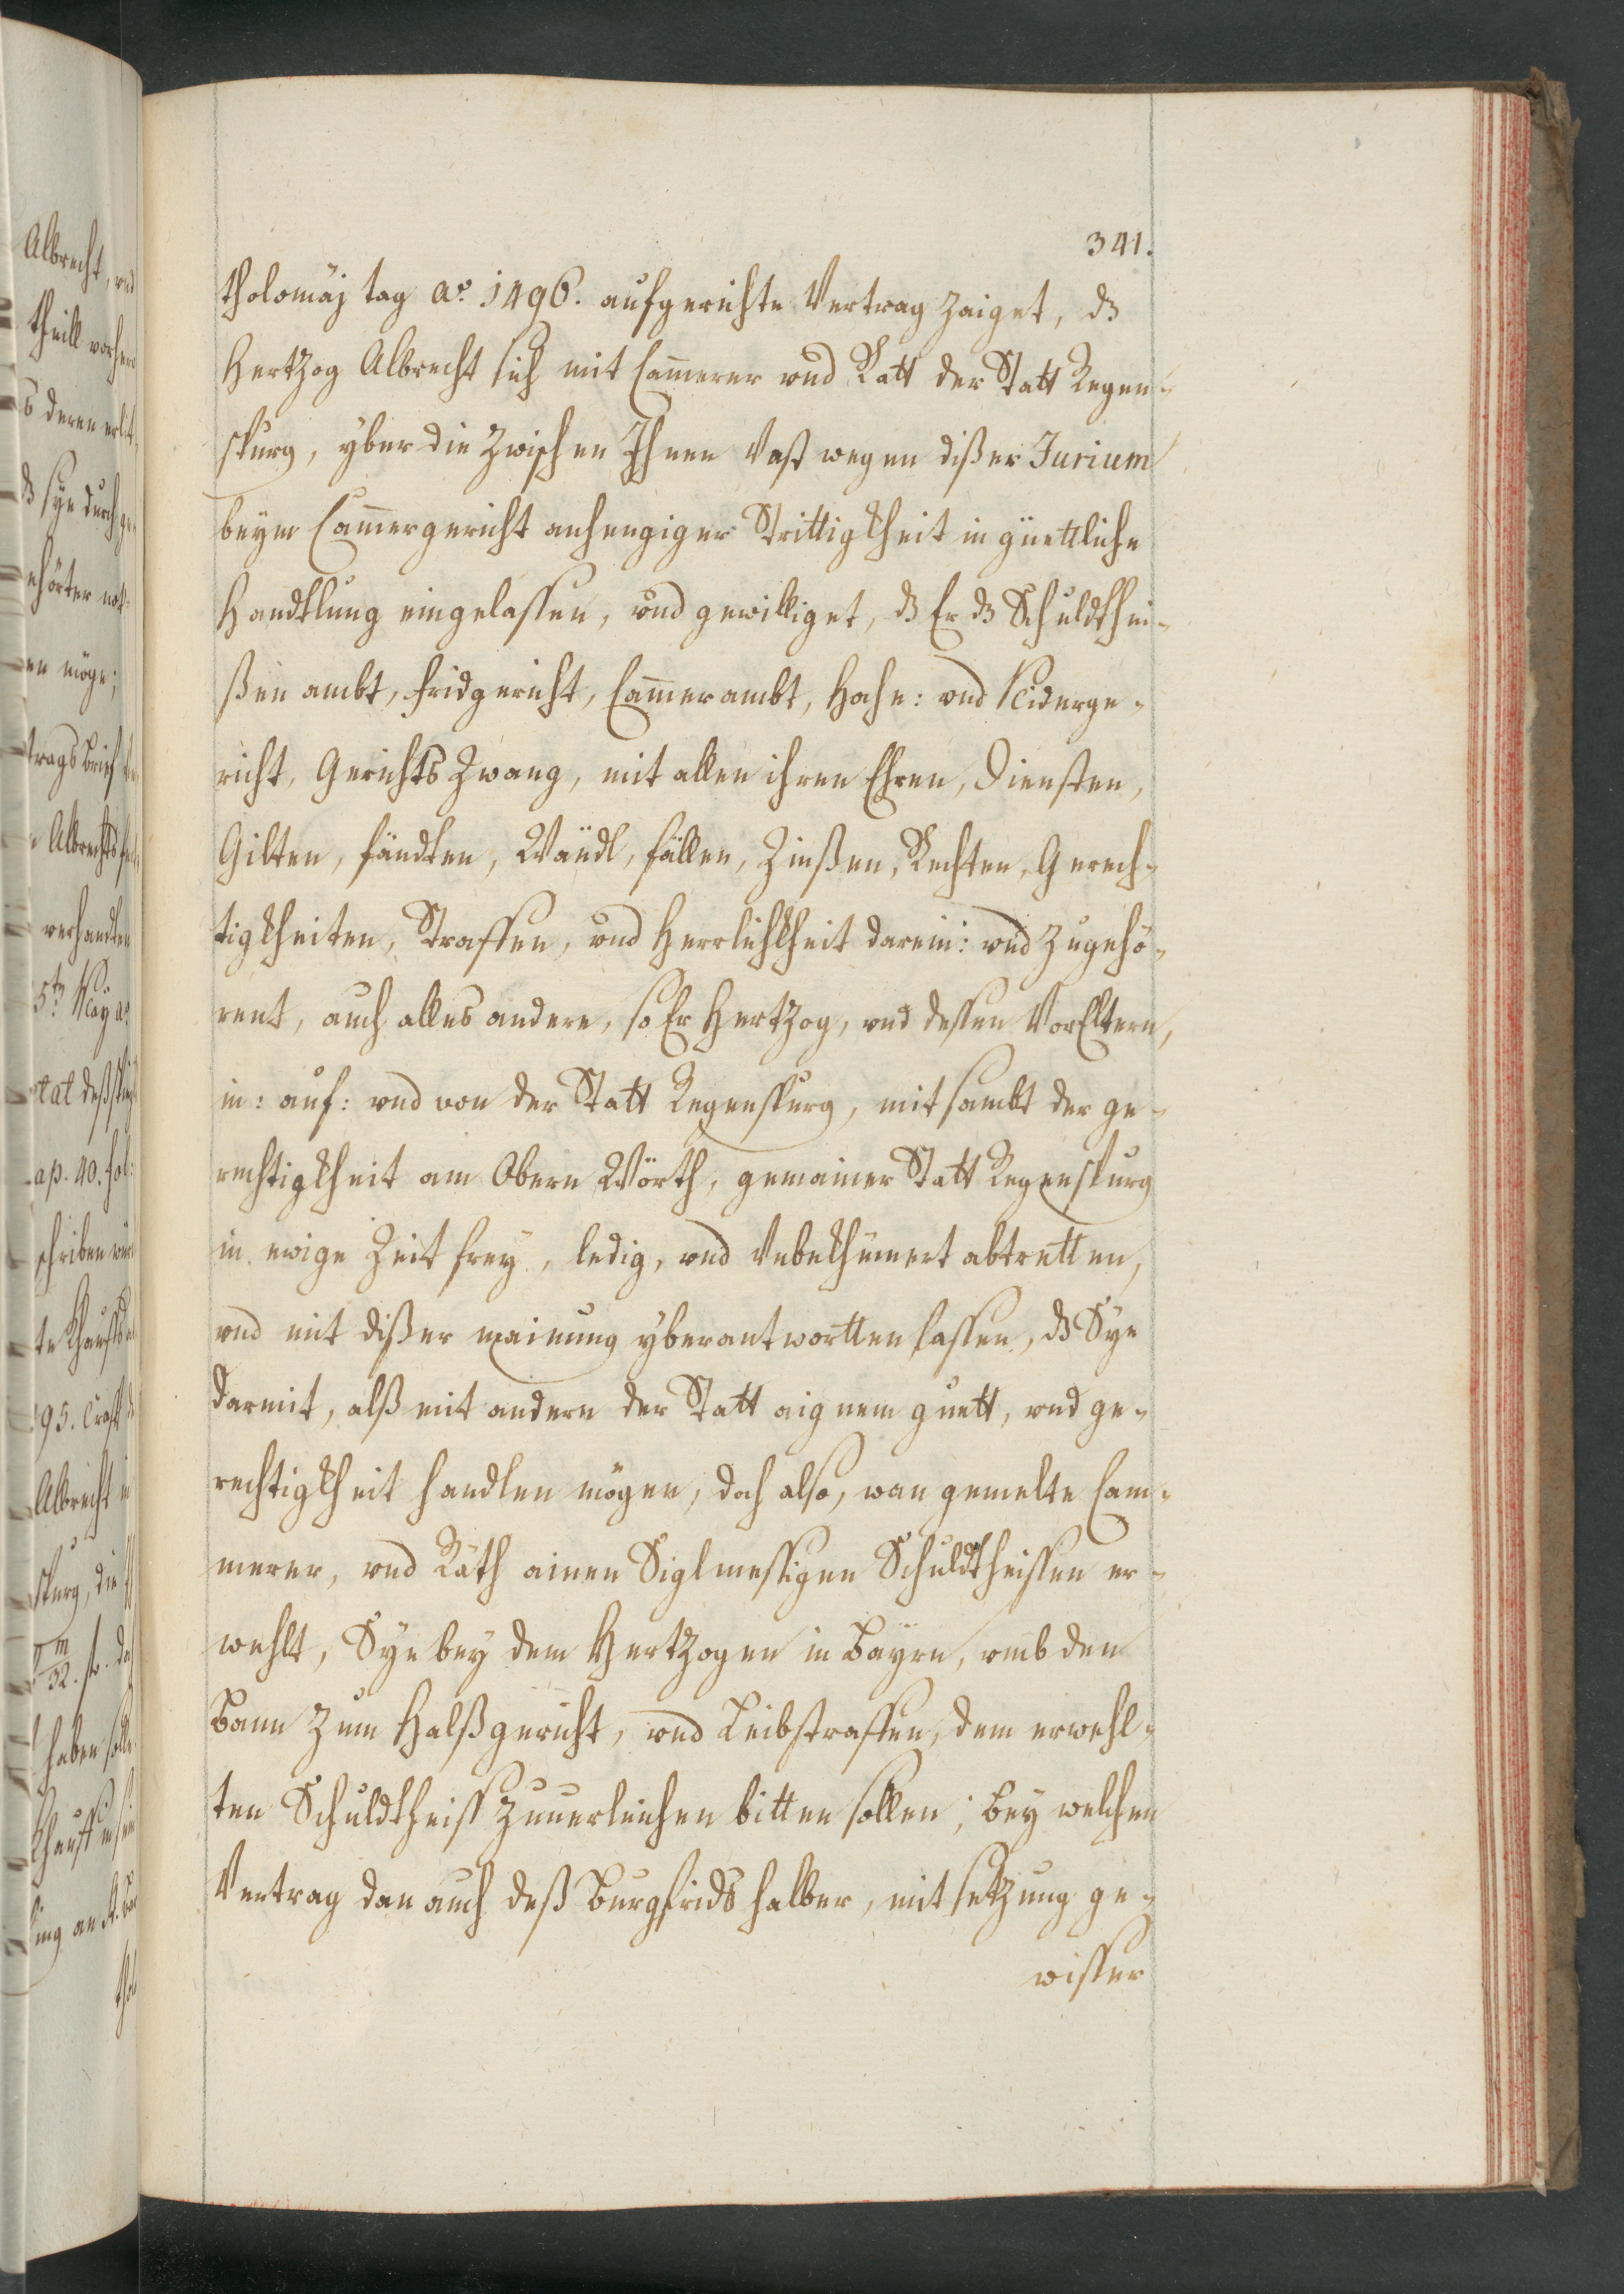 341.
tholomäj tag ao. 1496. aufgerichte Vertrag zaiget, dz
Hertzog Albrecht sich mit Cam̅erer vnd Ratt der Statt Regen-
spurg, yber die zwischen Ihnen vast wegen dißer Jurium
beym Cam̅ergericht anhengiger Strittigkheit in güettliche
Handtlung eingelassen, vnd gewilliget, dz Er dz Schuldthei-
ßen ambt, fridgericht, Cam̅erambt, Hoche: vnd Niderge-
richt, Gerichts Zwang, mit allen ihren Ehren, Diensten,
Gilten, fändten, Wändl, fällen, Zinßen, Rechten, Gerech-
tigkheiten, Straffen, vnd Herrlichkheit darein: vnd zugehö-
rent, auch alles andere, so Er Hertzog, vnd dessen VorEltern,
in: auf: vnd von der Statt Regenspurg, mit sambt der ge-
rechtigkheit am Obern Wörth, gemainer Statt Regenspurg
in ewige Zeit frey, ledig, vnd Vnbekhümert abtretten,
vnd mit dißer mainung yberantwortten lassen, dz Sye
darmit, alß mit andern der Statt aignem guett, vnd ge-
rechtigkheit handlen mögen, doch also, wan gemelte Cam-
merer, vnd Räth ainen Siglmessigen Schuldtheissen er-
wehlt, Sye bey dem Hertzogen in Bayrn, vmb den
Bann zum Halßgericht, vnd Leibstraffen, dem erwehl-
ten Schuldtheiss zuuerleichen bitten sollen; bey welchen
Vertrag dan auch deß Burgfrids halber, mit setzung ge-
wisser
Albrecht, vnd
theill vorhero
dz sye durch
en möge;
verhandten
ap. 40. fol:
95. Crafft
Albrecht
spurg, die
haben solle